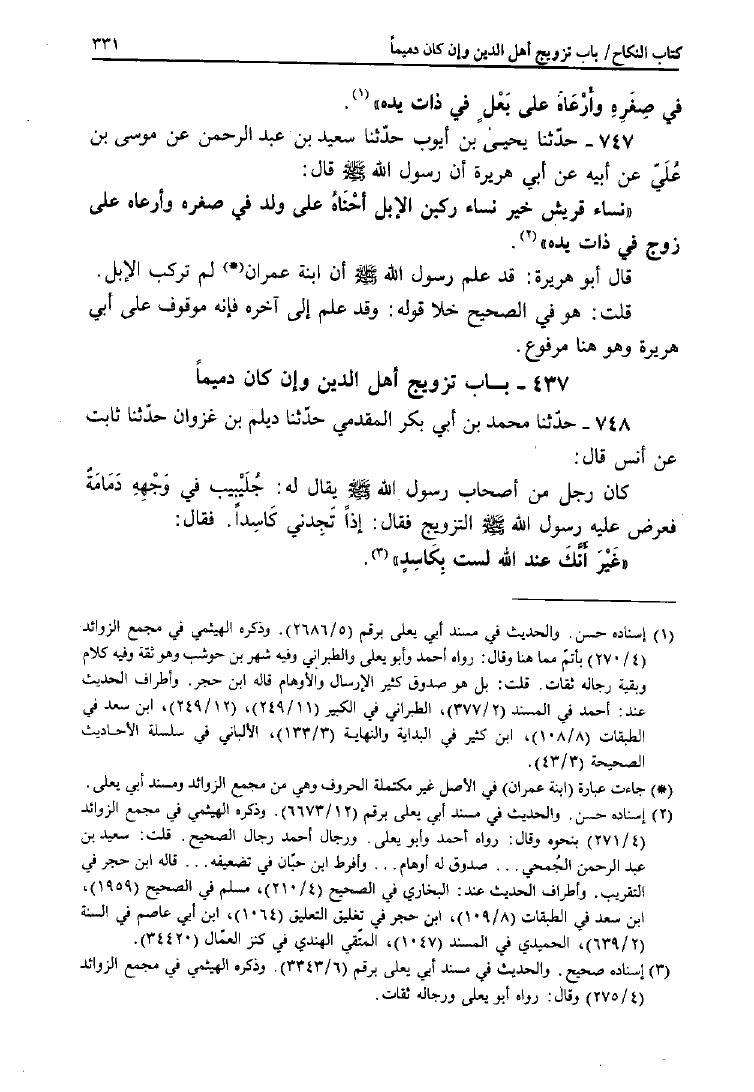 كتاب النكاح/ باب تزويج أهل الدين وإن كان دميماً ٣٣١
في صِغَرِهِ وأَرْعَاهُ على بَعْلٍ في ذات يده»(١).
٧٤٧ ـ حدّثنا يحيىٰ بن أيوب حدّثنا سعيد بن عبد الرحمن عن موسى بن
عُلَيّ عن أبيه عن أبي هريرة أن رسول الله ﷺ قال:
«نساء قريش خير نساء ركبن الإبل أَحْنَاهُ على ولد في صغره وأرعاه على
زوج في ذات يده»(٢).
قال أبو هريرة: قد علم رسول الله ﷺ أن ابنة عمران(*) لم تركب الإبل.
قلت: هو في الصحيح خلا قوله: وقد علم إلى آخره فإنه موقوف على أبي
هريرة وهو هنا مرفوع.
٤٣٧ ـ بــاب تزويج أهل الدين وإن كان دميماً
٧٤٨ ـ حدّثنا محمد بن أبي بكر المقدمي حدّثنا ديلم بن غزوان حدّثنا ثابت
عن أنس قال:
كان رجل من أصحاب رسول الله ﷺ يقال له: جُلَيْبِيب في وَجْهِهِ دَمَامَةٌ
فعرض عليه رسول الله ﷺ التزويج فقال: إذاً تَجِدني كَاسِداً. فقال:
«غَيْرَ أَنَّكَ عند الله لست بِكَاسِدٍ»(٣).
(١) إسناده حسن. والحديث في مسند أبي يعلى برقم (٢٦٨٦/٥). وذكره الهيثمي في مجمع الزوائد
(٢٧٠/٤) بأتمّ مما هنا وقال: رواه أحمد وأبو يعلى والطبراني وفيه شهر بن حوشب وهو ثقة وفيه كلام
وبقية رجاله ثقات. قلت: بل هو صدوق كثير الإرسال والأوهام قاله ابن حجر. وأطراف الحديث
عند: أحمد في المسند (٣٧٧/٢)، الطبراني في الكبير (٢٤٩/١١)، (٢٤٩/١٢)، ابن سعد في
الطبقات (١٠٨/٨)، ابن كثير في البداية والنهايـة (١٣٣/٣)، الألباني في سلسلة الأحـاديث
الصحيحة (٤٣/٣).
(*) جاءت عبارة (ابنة عمران) في الأصل غير مكتملة الحروف وهي من مجمع الزوائد ومسند أبي يعلى.
(٢) إسناده حسن. والحديث في مسند أبي يعلى برقم (٦٦٧٣/١٢). وذكره الهيثمي في مجمع الزوائد
(٢٧١/٤) بنحوه وقال: رواه أحمد وأبو يعلى. ورجال أحمد رجال الصحيح. قلت: سعيد بن
عبد الرحمن الجُمحي... صدوق له أوهام... وأفرط ابن حبّان في تضعيفه... قاله ابن حجر في
التقريب. وأطراف الحديث عند: البخاري في الصحيح (٢١٠/٤)، مسلم في الصحيح (١٩٥٩)،
ابن سعد في الطبقات (١٠٩/٨)، ابن حجر في تغليق التعليق (١٠٦٤)، ابن أبي عاصم في السنة
(٦٣٩/٢)، الحميدي في المسند (١٠٤٧)، المتّقي الهندي في كنز العمّال (٣٤٤٢٠).
(٣) إسناده صحيح. والحديث في مسند أبي يعلى برقم (٣٣٤٣/٦). وذكره الهيثمي في مجمع الزوائد
(٢٧٥/٤) وقال: رواه أبو يعلى ورجاله ثقات.